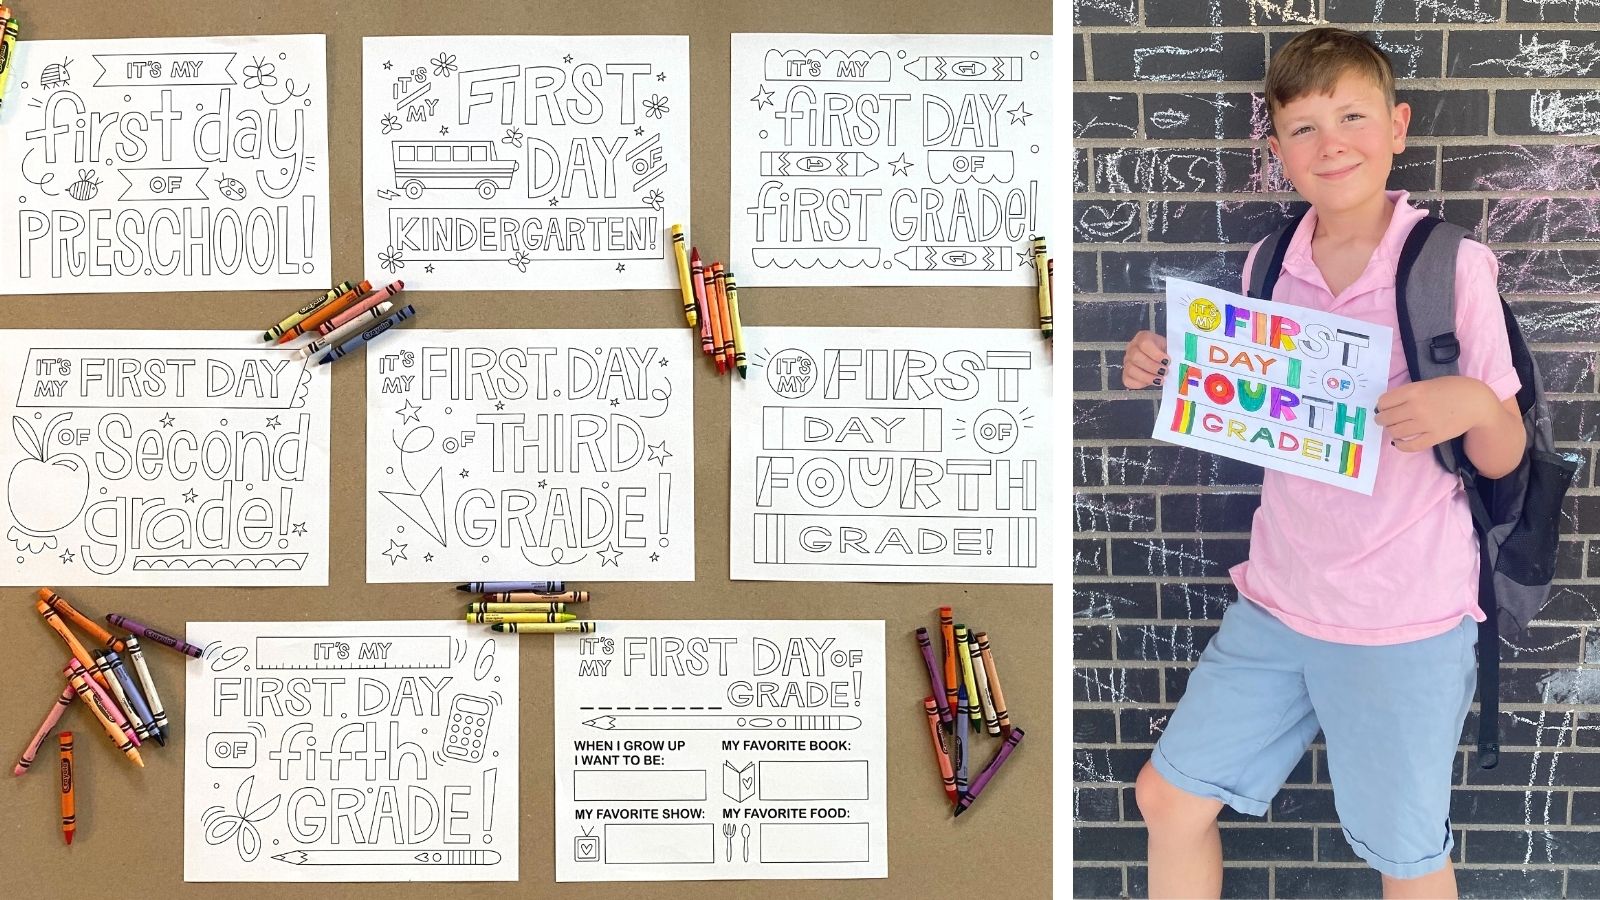 IT'S MY
first day
OF
PRESCHOOL!
IT'S MY
FIRST
DAY OF
KINDERGARTEN!
IT'S MY
1
fiRST DAY
1
OF
fiRST GRADe!
1
IT'S MY FIRST DAY
OF Second
grade!
IT'S MY FIRST DAY
OF THIRD
GRADE!
IT'S MY FIRST
DAY OF
FOURTH
GRADE!
IT'S MY
FIRST DAY
OF fifth
GRADE!
IT'S MY FIRST DAY OF
GRADE!
WHEN I GROW UP
I WANT TO BE:
MY FAVORITE BOOK:
MY FAVORITE SHOW:
MY FAVORITE FOOD:
IT'S MY FIRST
DAY OF
FOURTH
GRADE!
Crayola
Crayola
Crayola